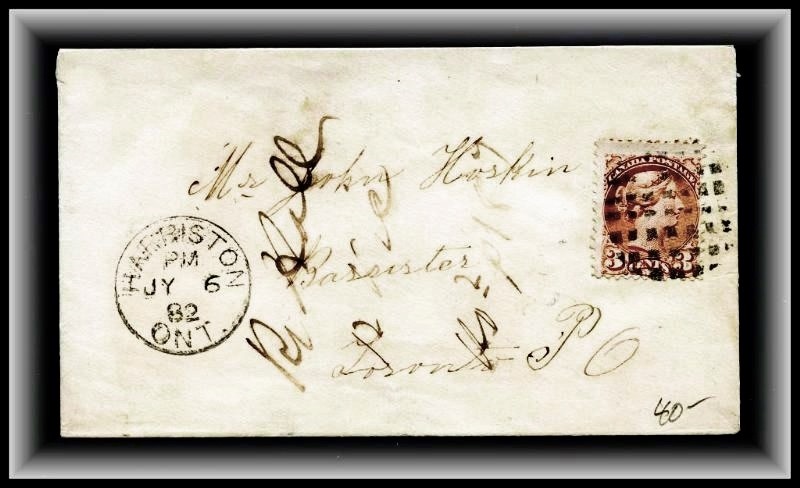 CANADA POSTAGE
3 CENTS 3
Mr John Hoskin
Barrister
Toronto P O
HARRISTON
PM
JY 6
82
ONT.
40-